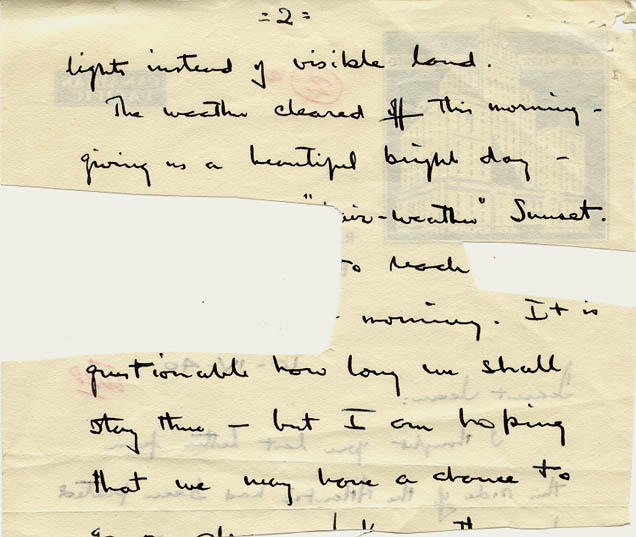 = 2 =
lights instead of visible land.
The weather cleared this morning -
giving us a beautiful bright day -
-weather" Sunset.
to reach
morning. It is
questionable how long we shall
stay there - but I am hoping
that we may have a chance to